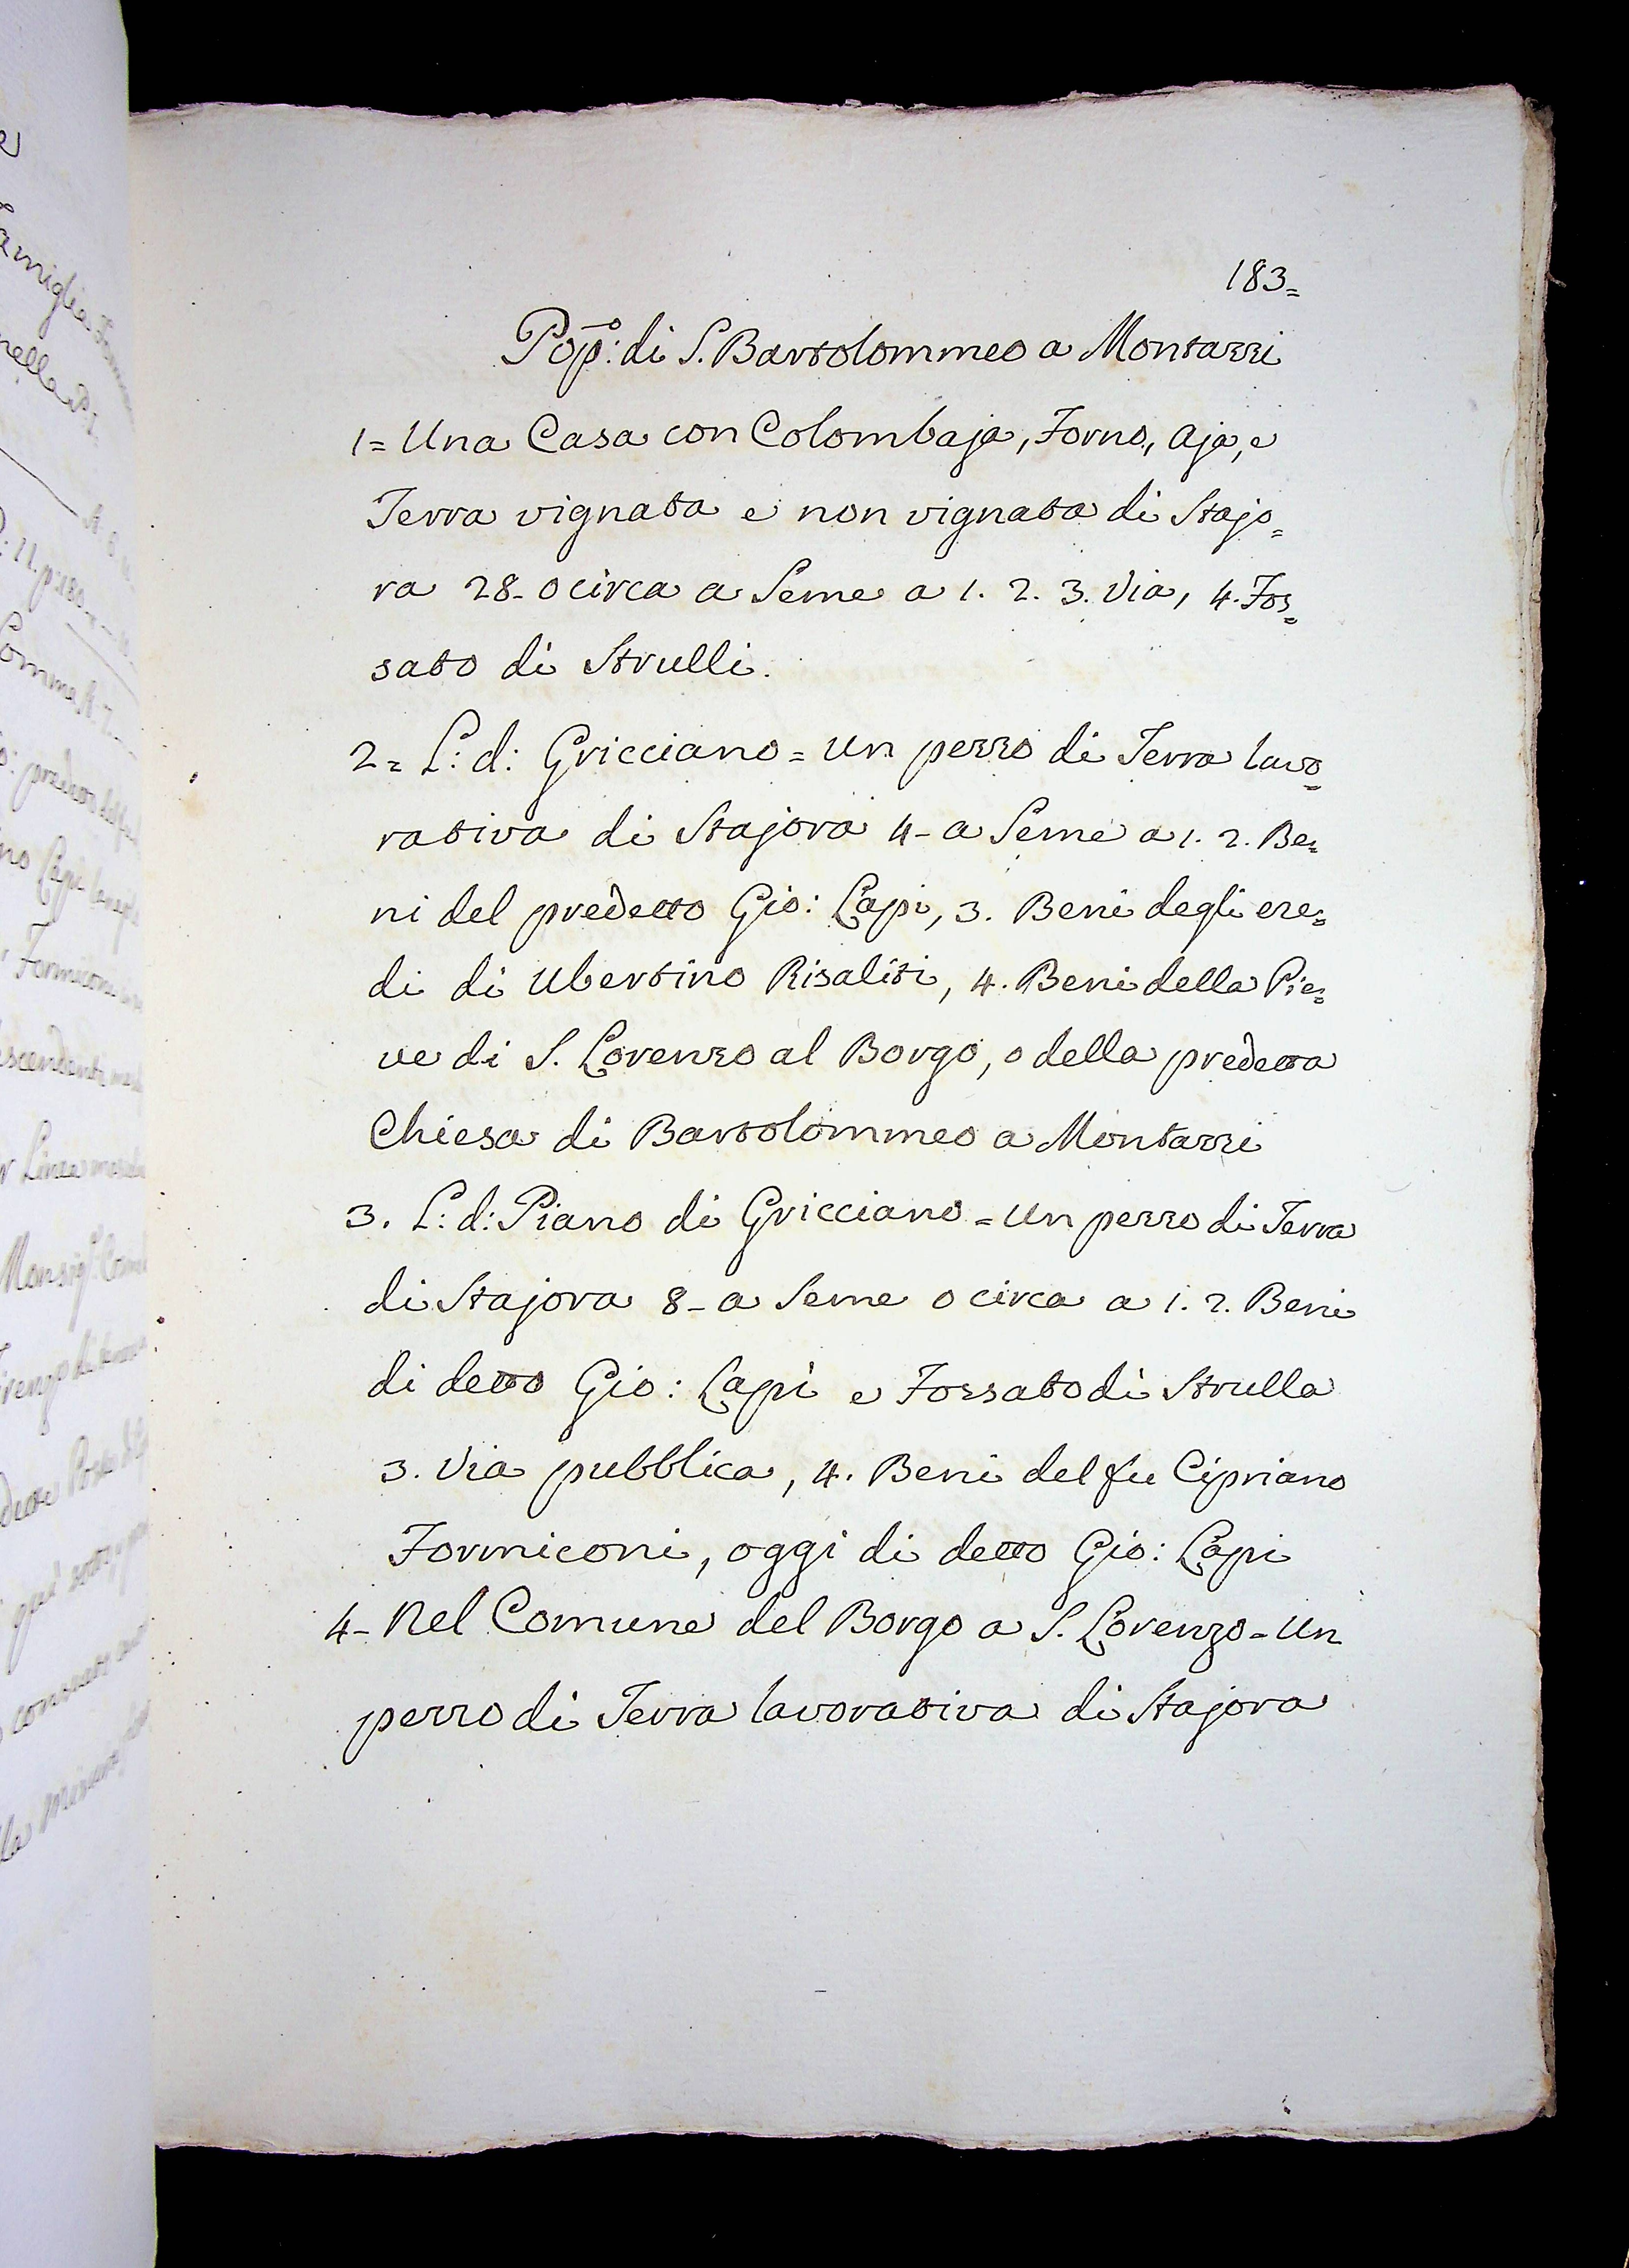 183=
Pop̄o: di S. Bartolommeo a Montazzi
1= Una Casa con Colombaja, Forno, Aja, e
Terra vignata e non vignata di Stajo=
ra 28- o circa a Seme a 1. 2. 3. Via, 4. Fos=
sato di Strulli.
2= L: d: Gricciano = Un pezzo di Terra lavo=
rativa di Stajora 4- a Seme a 1. 2. Be=
ni del predetto Gio: Lapi, 3. Beni degli ere=
di di Ubertino Risaliti, 4. Beni della Pie=
ve di S. Lorenzo al Borgo, o della predetta
Chiesa di Bartolommeo a Montazzi
3. L: d: Piano di Gricciano = Un pezzo di Terra
di Stajora 8- a Seme o circa a 1. 2. Beni
di detto Gio: Lapi e Fossato di Strulla
3. Via pubblica, 4. Beni del fu Cipriano
Formiconi, oggi di detto Gio: Lapi
4- Nel Comune del Borgo a S. Lorenzo = Un
pezzo di Terra lavorativa di Stajora